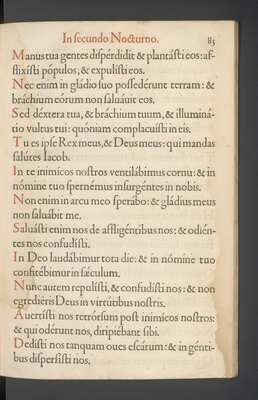 In secundo Nocturno. 83
Manus tua gentes dispérdidit & plantásti eos: af-
flixísti pópulos, & expulísti eos.
Nec enim in gládio suo possedérunt terram: &
bráchium eórum non saluáuit eos.
Sed déxtera tua, & bráchium tuum, & illuminá-
tio vultus tui: quóniam complacuísti in eis.
Tu es ipse Rex meus, & Deus meus: qui mandas
salútes Iacob.
In te inimícos nostros ventilábimus cornu: & in
nómine tuo spernémus insurgéntes in nobis.
Non enim in arcu meo sperábo: & gládius meus
non saluábit me.
Saluásti enim nos de affligéntibus nos: & odién-
tes nos confudísti.
In Deo laudábimur tota die: & in nómine tuo
confitébimur in sæculum.
Nunc autem repulísti, & confudísti nos: & non
egrediéris Deus in virtútibus nostris.
Auertísti nos retrórsum post inimicos nostros:
& qui odérunt nos, diripiébant sibi.
Dedísti nos tanquam oues escárum: & in génti-
bus dispersísti nos.